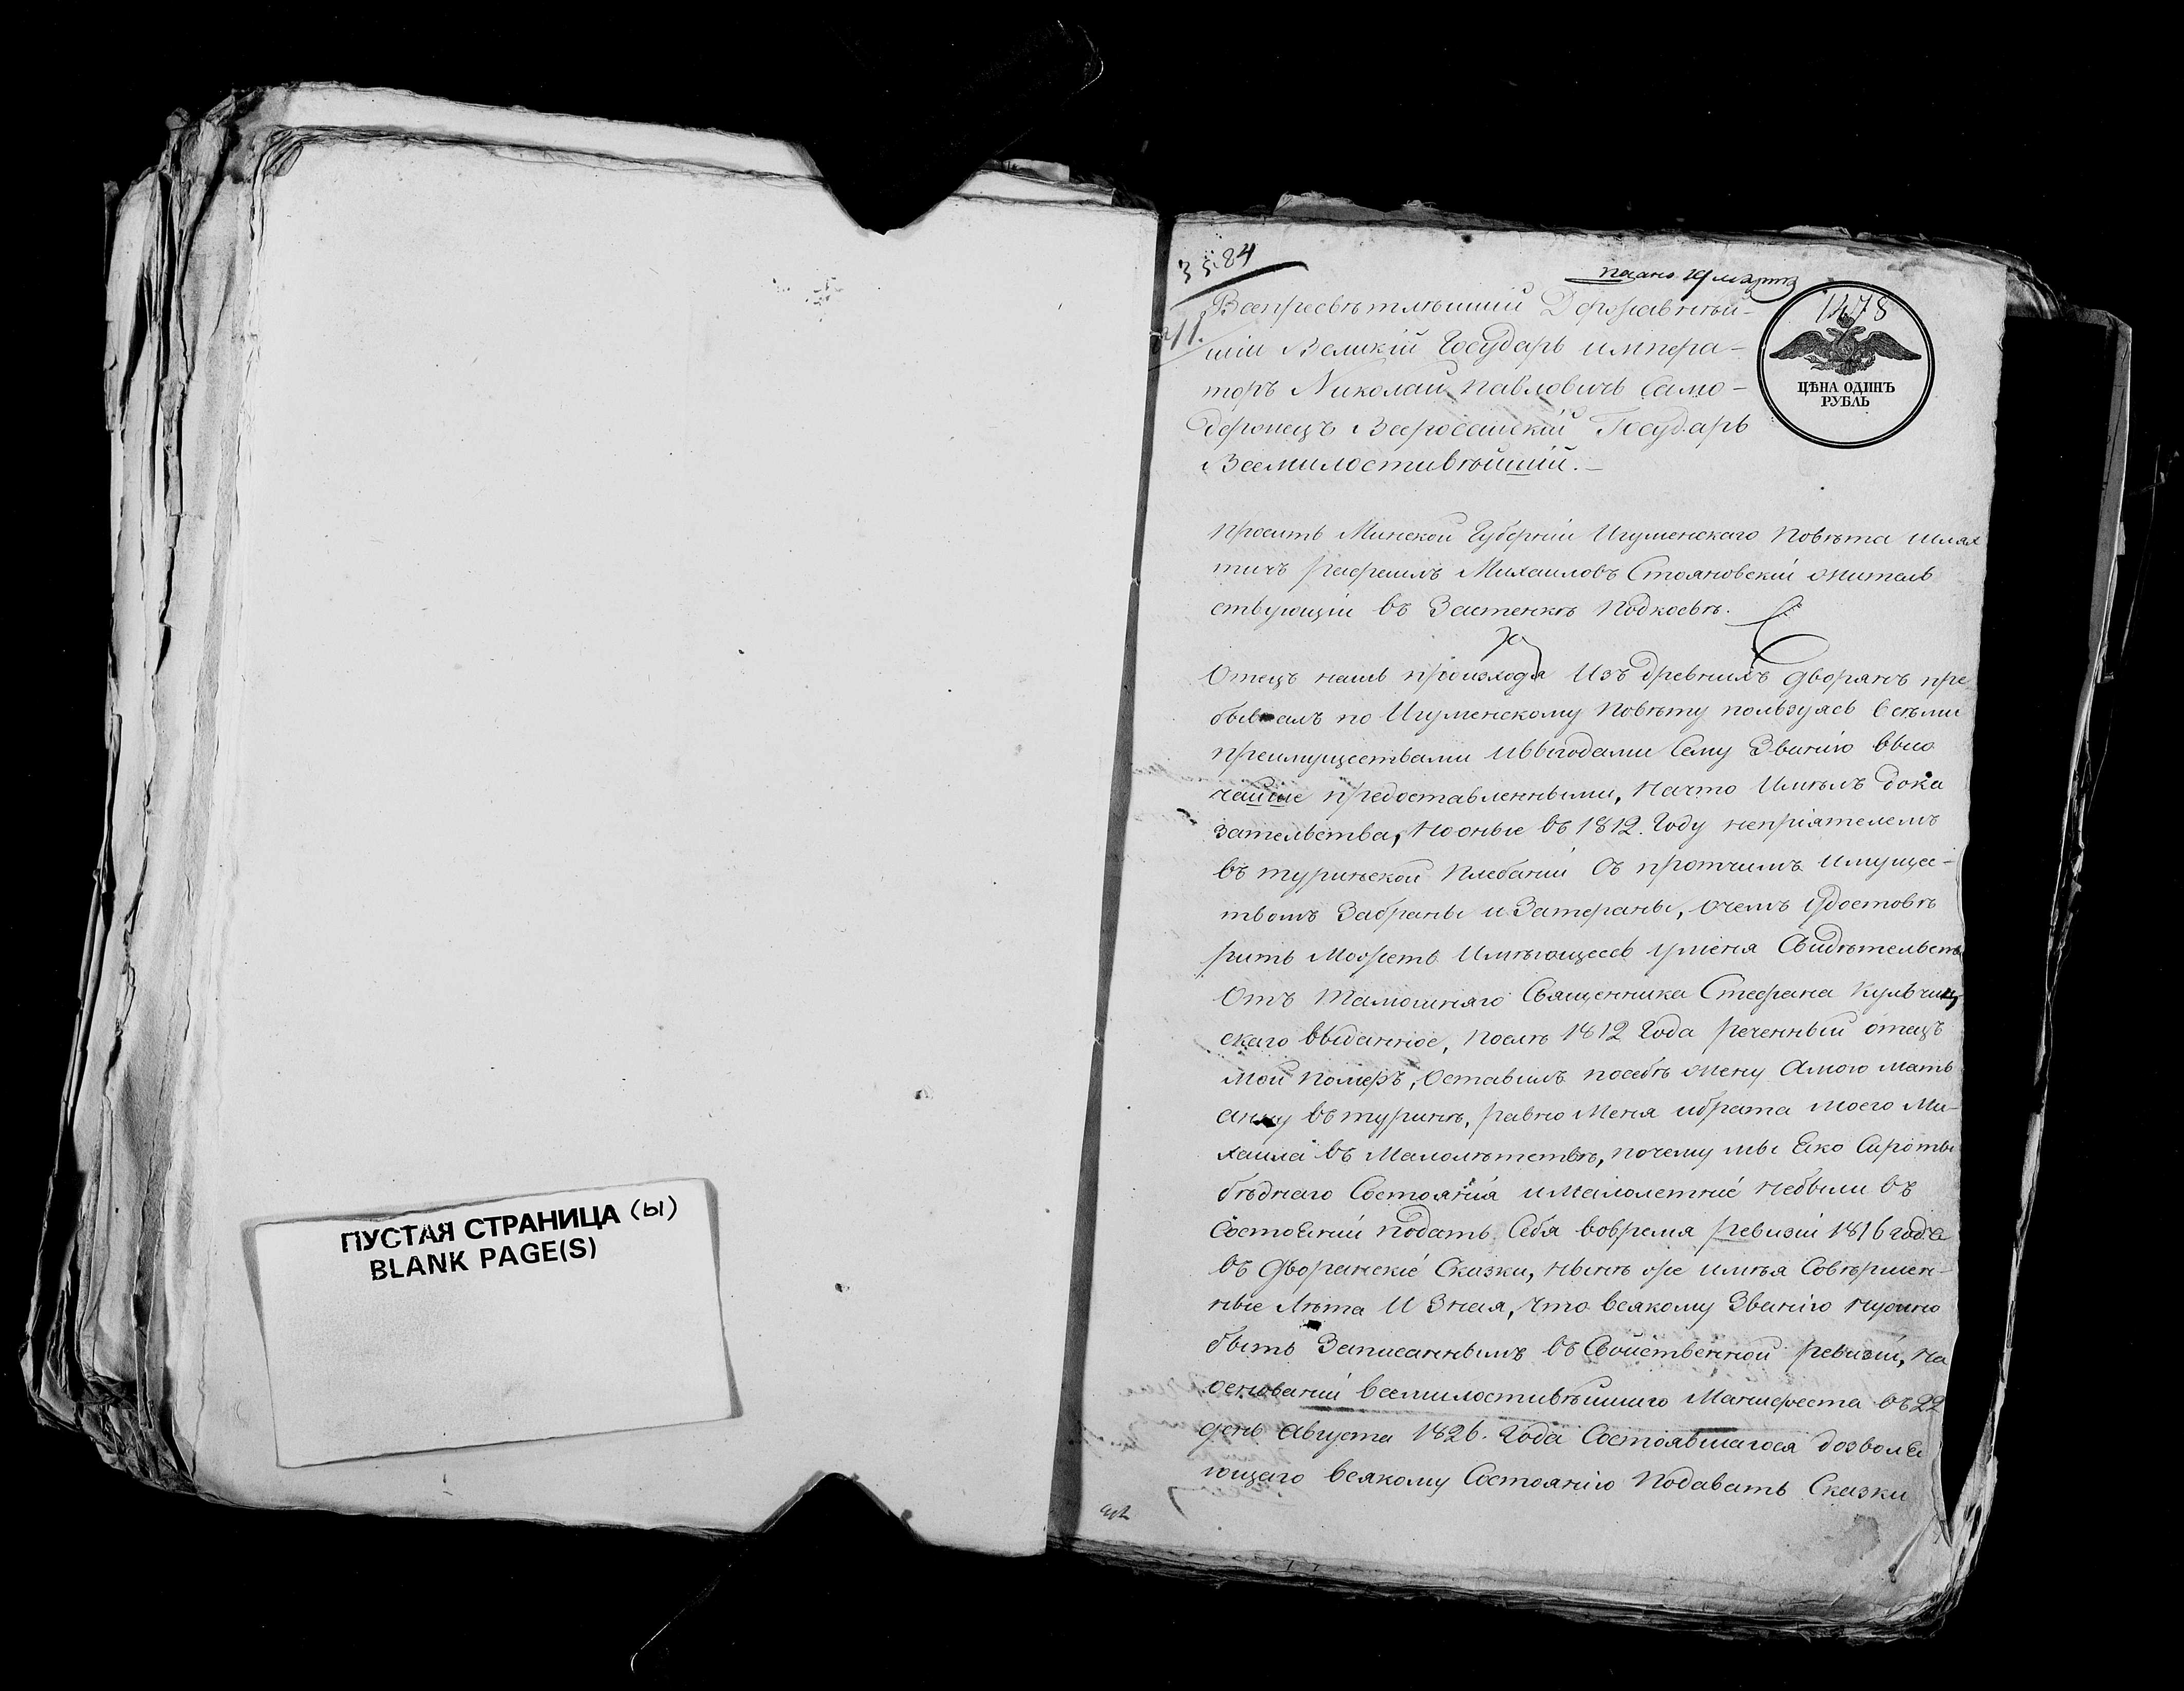 ПУСТАЯ СТРАНИЦА (Ы)
BLANK PAGE(S)
3584
1478
ЦѢНА ОДИНЪ
РУБЛЬ
Всепресвѣтлѣишiй Державнѣи-
шiи Великiй Государь импера-
торъ Николаи Павловичъ Само-
держецъ Всеросаискiй Государь
Всемилостивѣйшiй.-
Проситъ Минской Губернiи Игуменскаго Повѣта шлях
тичъ Рафеилъ Михаиловъ Стояновскiй житель
ствующiи въ Застенкѣ Подкосвѣ.
Отецъ нашъ происходя Изъ древнихъ дворянъ пре
бывалъ по Игуменскому Повѣту пользуясь всѣми
преимуществами ивыгодами Сему Званiю высо
чаише предоставленными, на что Имѣлъ дока
зательства, но оные въ 1812. Году непрiятелемъ
въ туринской Плебанiи съ протчимъ имущес-
твомъ Забраны и Затераны, очемъ удостовѣ
рить Можетъ Имѣющееся уменя Свидѣтельств
Отъ тамошняго Священника Стефана Кульчиц
скаго выданное, послѣ 1812 Года реченный отецъ
мои померъ, Оставилъ посебѣ жену Амою мать
анну въ туринѣ, равно Меня ибрата моего Ми-
хаила въ Малолѣтствѣ, почему мы Еко Сироты
бѣднаго Состоянiя ималолетнiе небыли въ
СостоЕнiи Подать Себя вовремя ревизiи 1816 года
въ Дворянскiе Сказки, нынѣ же имѣя Совѣршен-
ные Лѣта И Зная, что всякому Званiю нужно
быть Записаннымъ въ Свойственной ревизiи, на
основанiи всемилостивѣишаго Манифеста въ 22
день Августа 1826. Года Состоявшагося дозволЕ
ющаго всякому Состоянiю Подавать Сказки